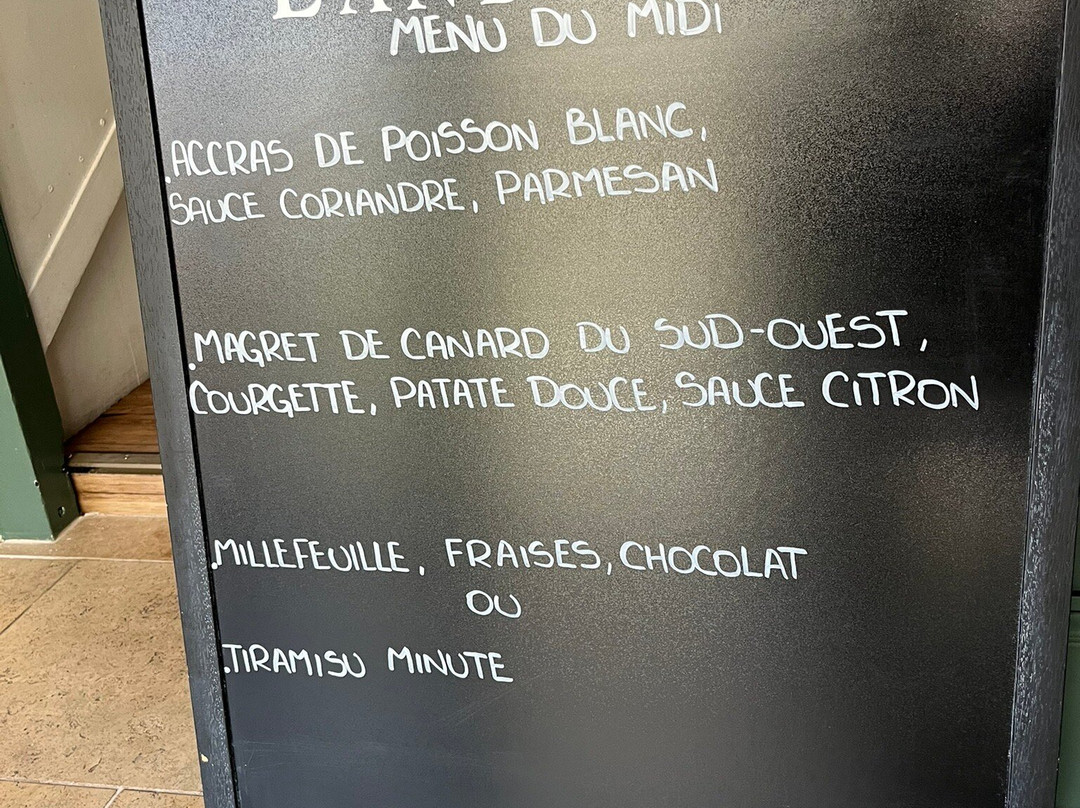 MENU DU MIDI
.ACCRAS DE POISSON BLANC,
SAUCE CORIANDRE, PARMESAN
.MAGRET DE CANARD DU SUD-OUEST,
COURGETTE, PATATE DOUCE, SAUCE CITRON
.MILLEFEUILLE, FRAISES, CHOCOLAT
OU
.TIRAMISU MINUTE